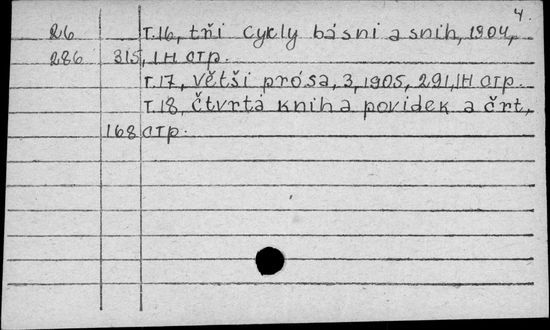 4.
26 т.16, tři cykly básni a snih, 1904,
286 315, 1 н стр.
т.17, větši prósa, 3, 1905, 291, 1н стр.
т.18, čtvrtá kniha povidek a črt,
168 стр.